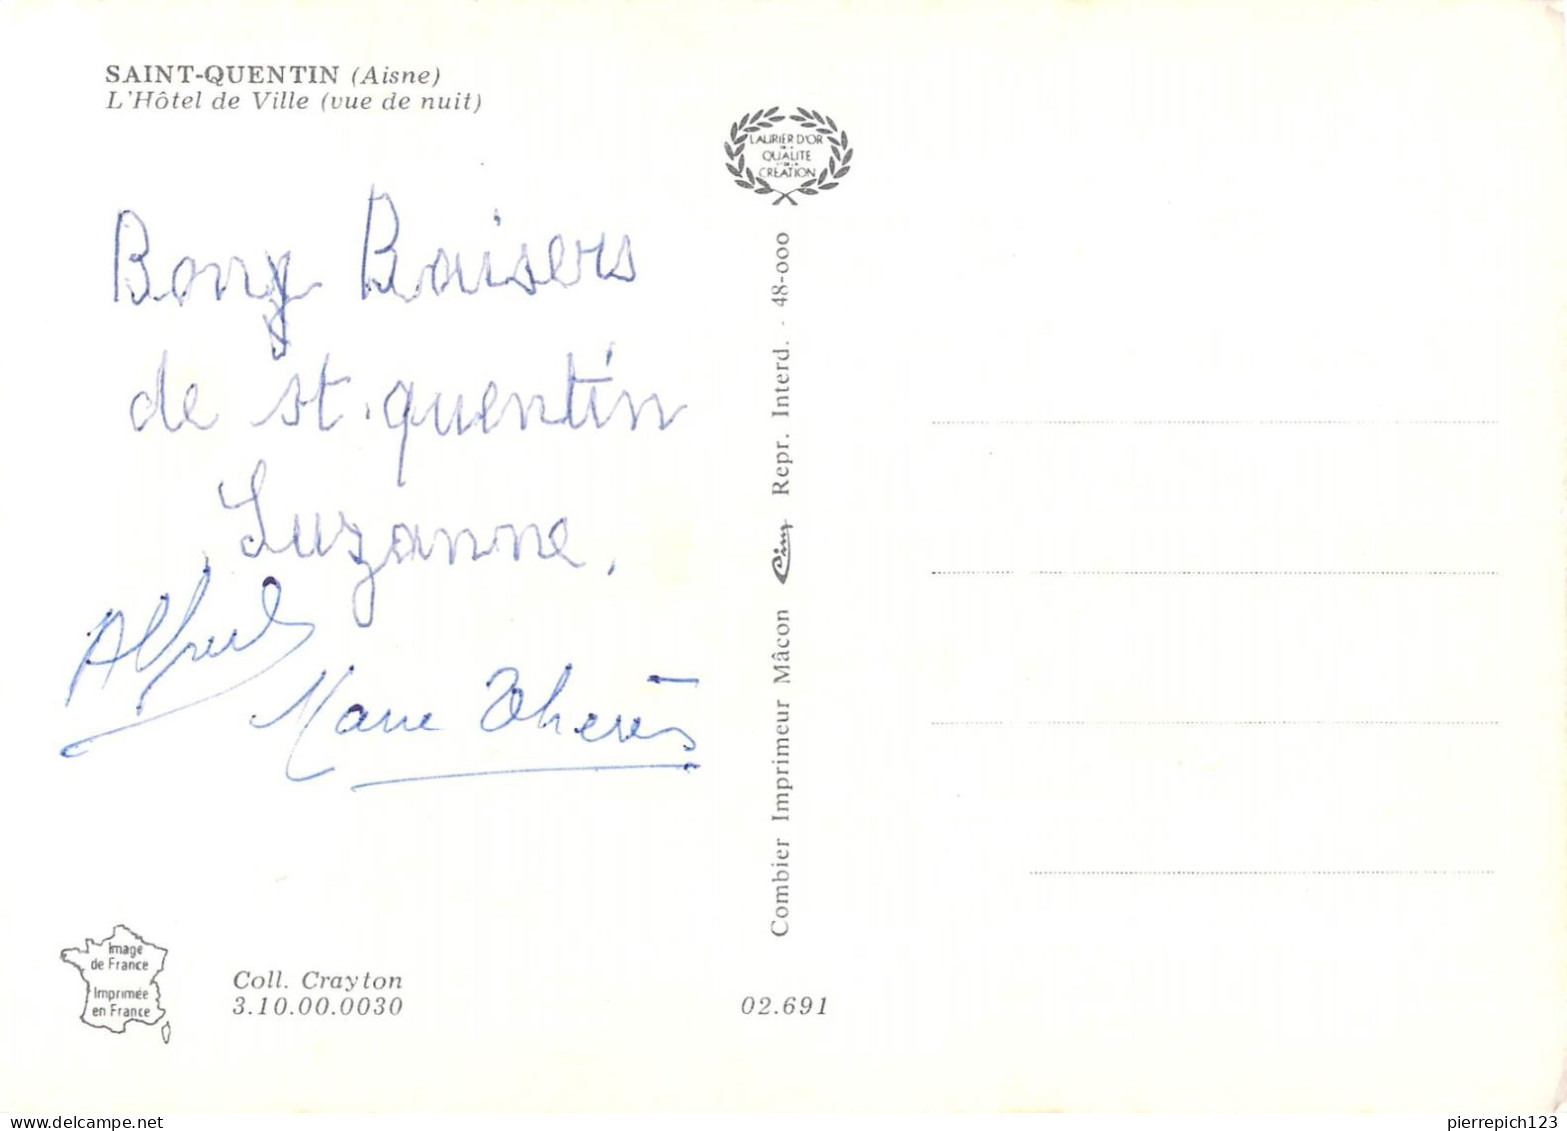 SAINT-QUENTIN (Aisne)
L'Hôtel de Ville (vue de nuit)
LAURIER D'OR
DE LA
QUALITE
ET DE LA
CRÉATION
Bons Baisers
de st. quentin
Suzanne,
Alfred
Marie Thérès
Combier Imprimeur Mâcon Cim Repr. Interd. - 48-000
Image
de France
Imprimée
en France
Coll. Crayton
3.10.00.0030
02.691
pierrepich123